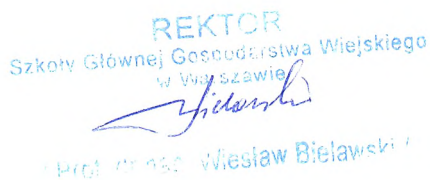 REKTOR
Szkoły Głównej Gospodarstwa Wiejskiego
w Warszawie
Bielawski
/ Prof. dr hab. Wiesław Bielawski /